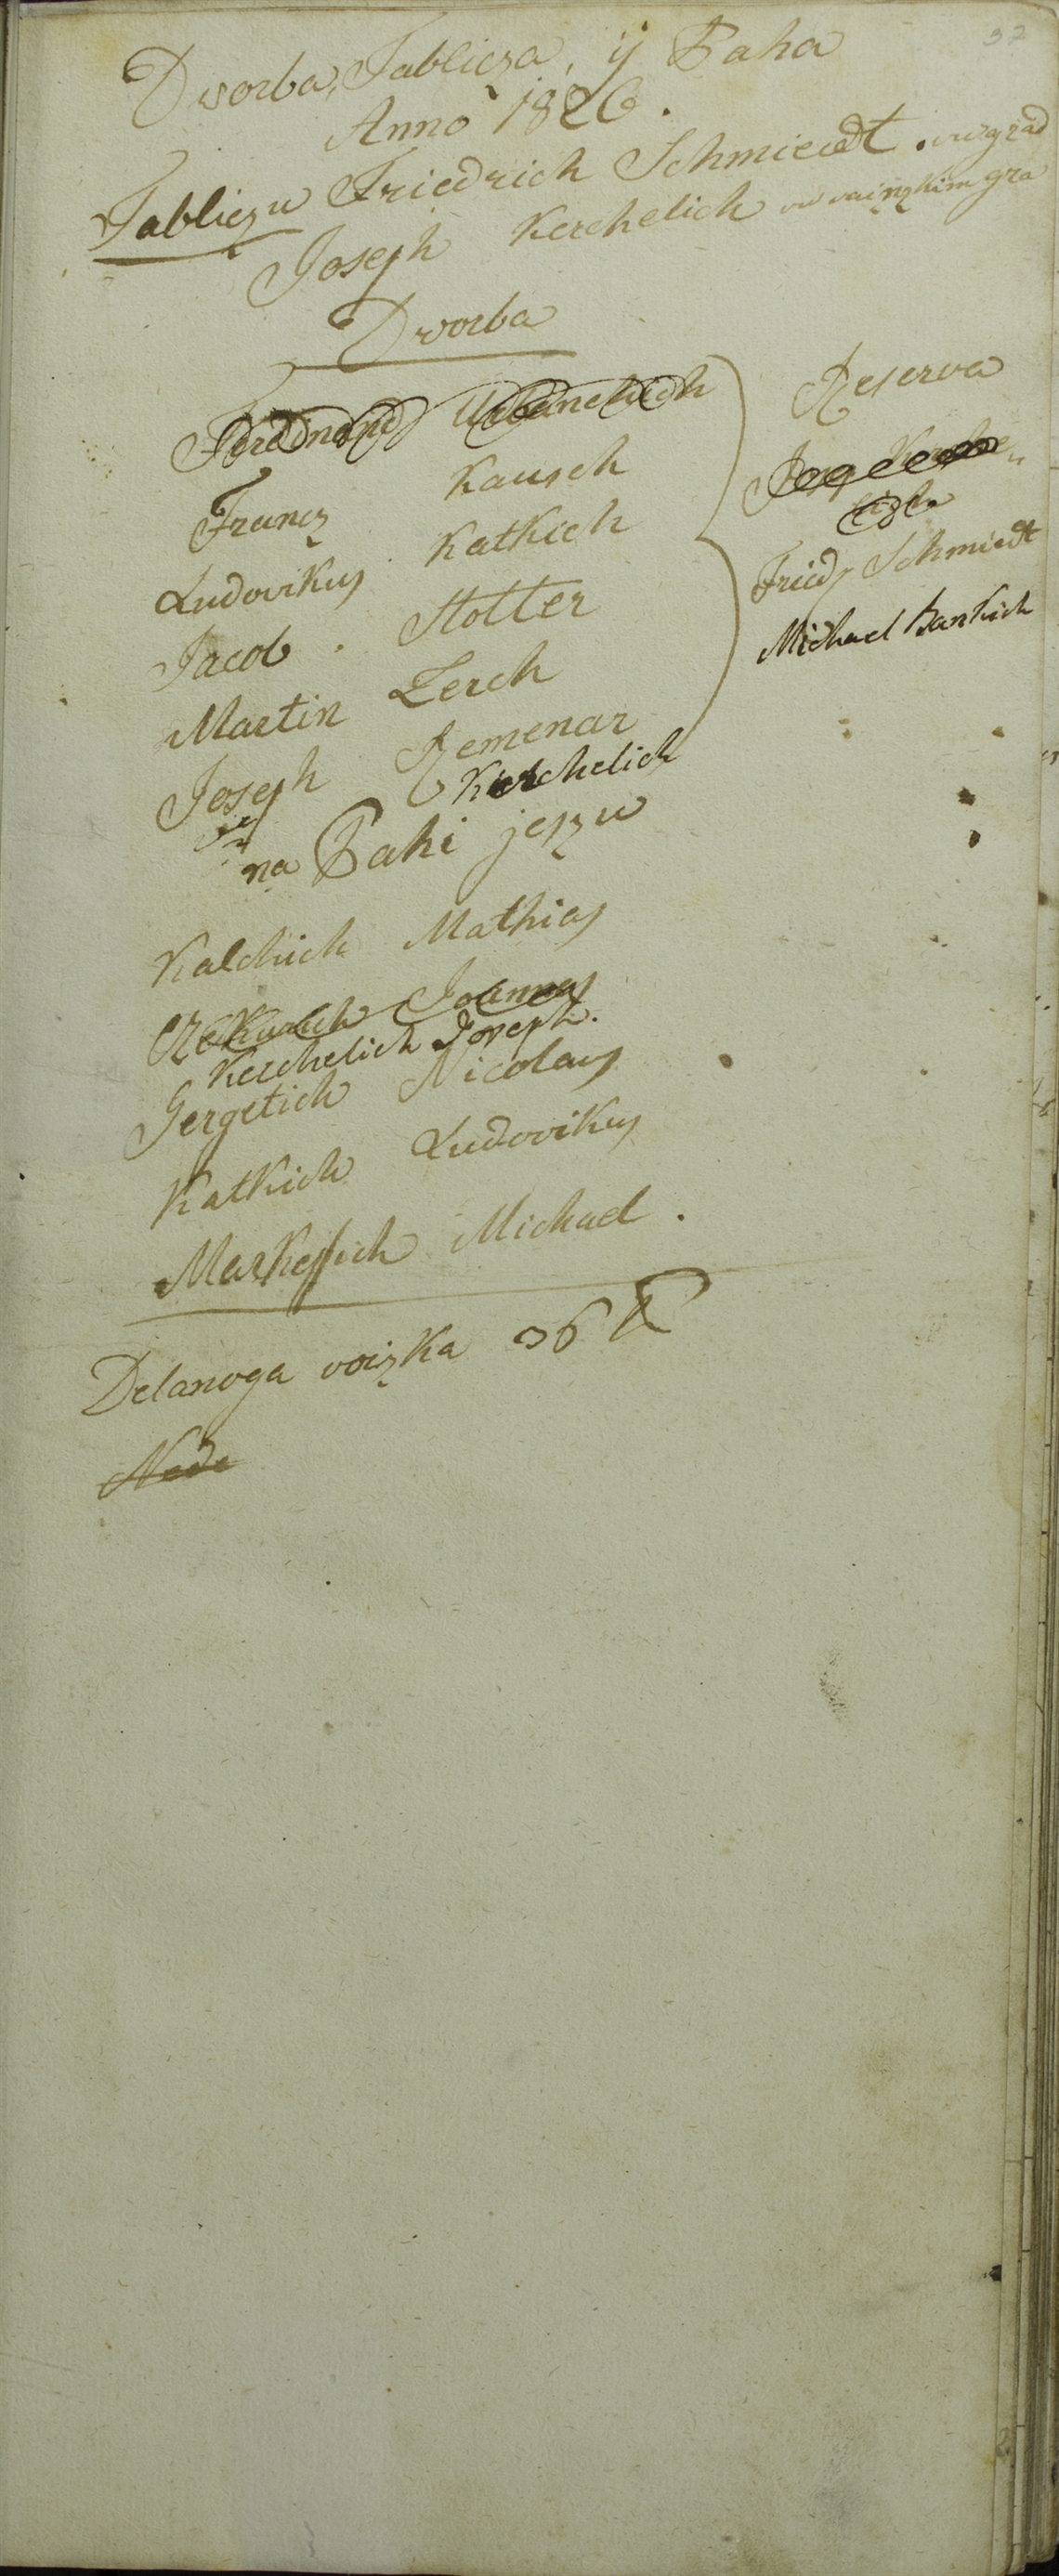 37
Dvorba, Tablicza, ij Baha
Anno 1826.
Tabliczu Friedrich Schmiedt. vu grad
Joseph Kerchelich vu vainzkim gra
Dvorba
Ferdinand Urbanchich
Francz Kausch
Ludovikus Katkich
Jacob. Stotter
Martin Lerch
Joseph Remenar
Kerchelich
Reserva
Fried Schmiedt
Michael Bankich
na Bahi jeszu
Kalchich Mathias
Joannes
Kerchelich Joseph.
Gergetich Nicolaus
Katkich Ludovikus
Markessich Michael.
Delanoga voizka 36
Nede